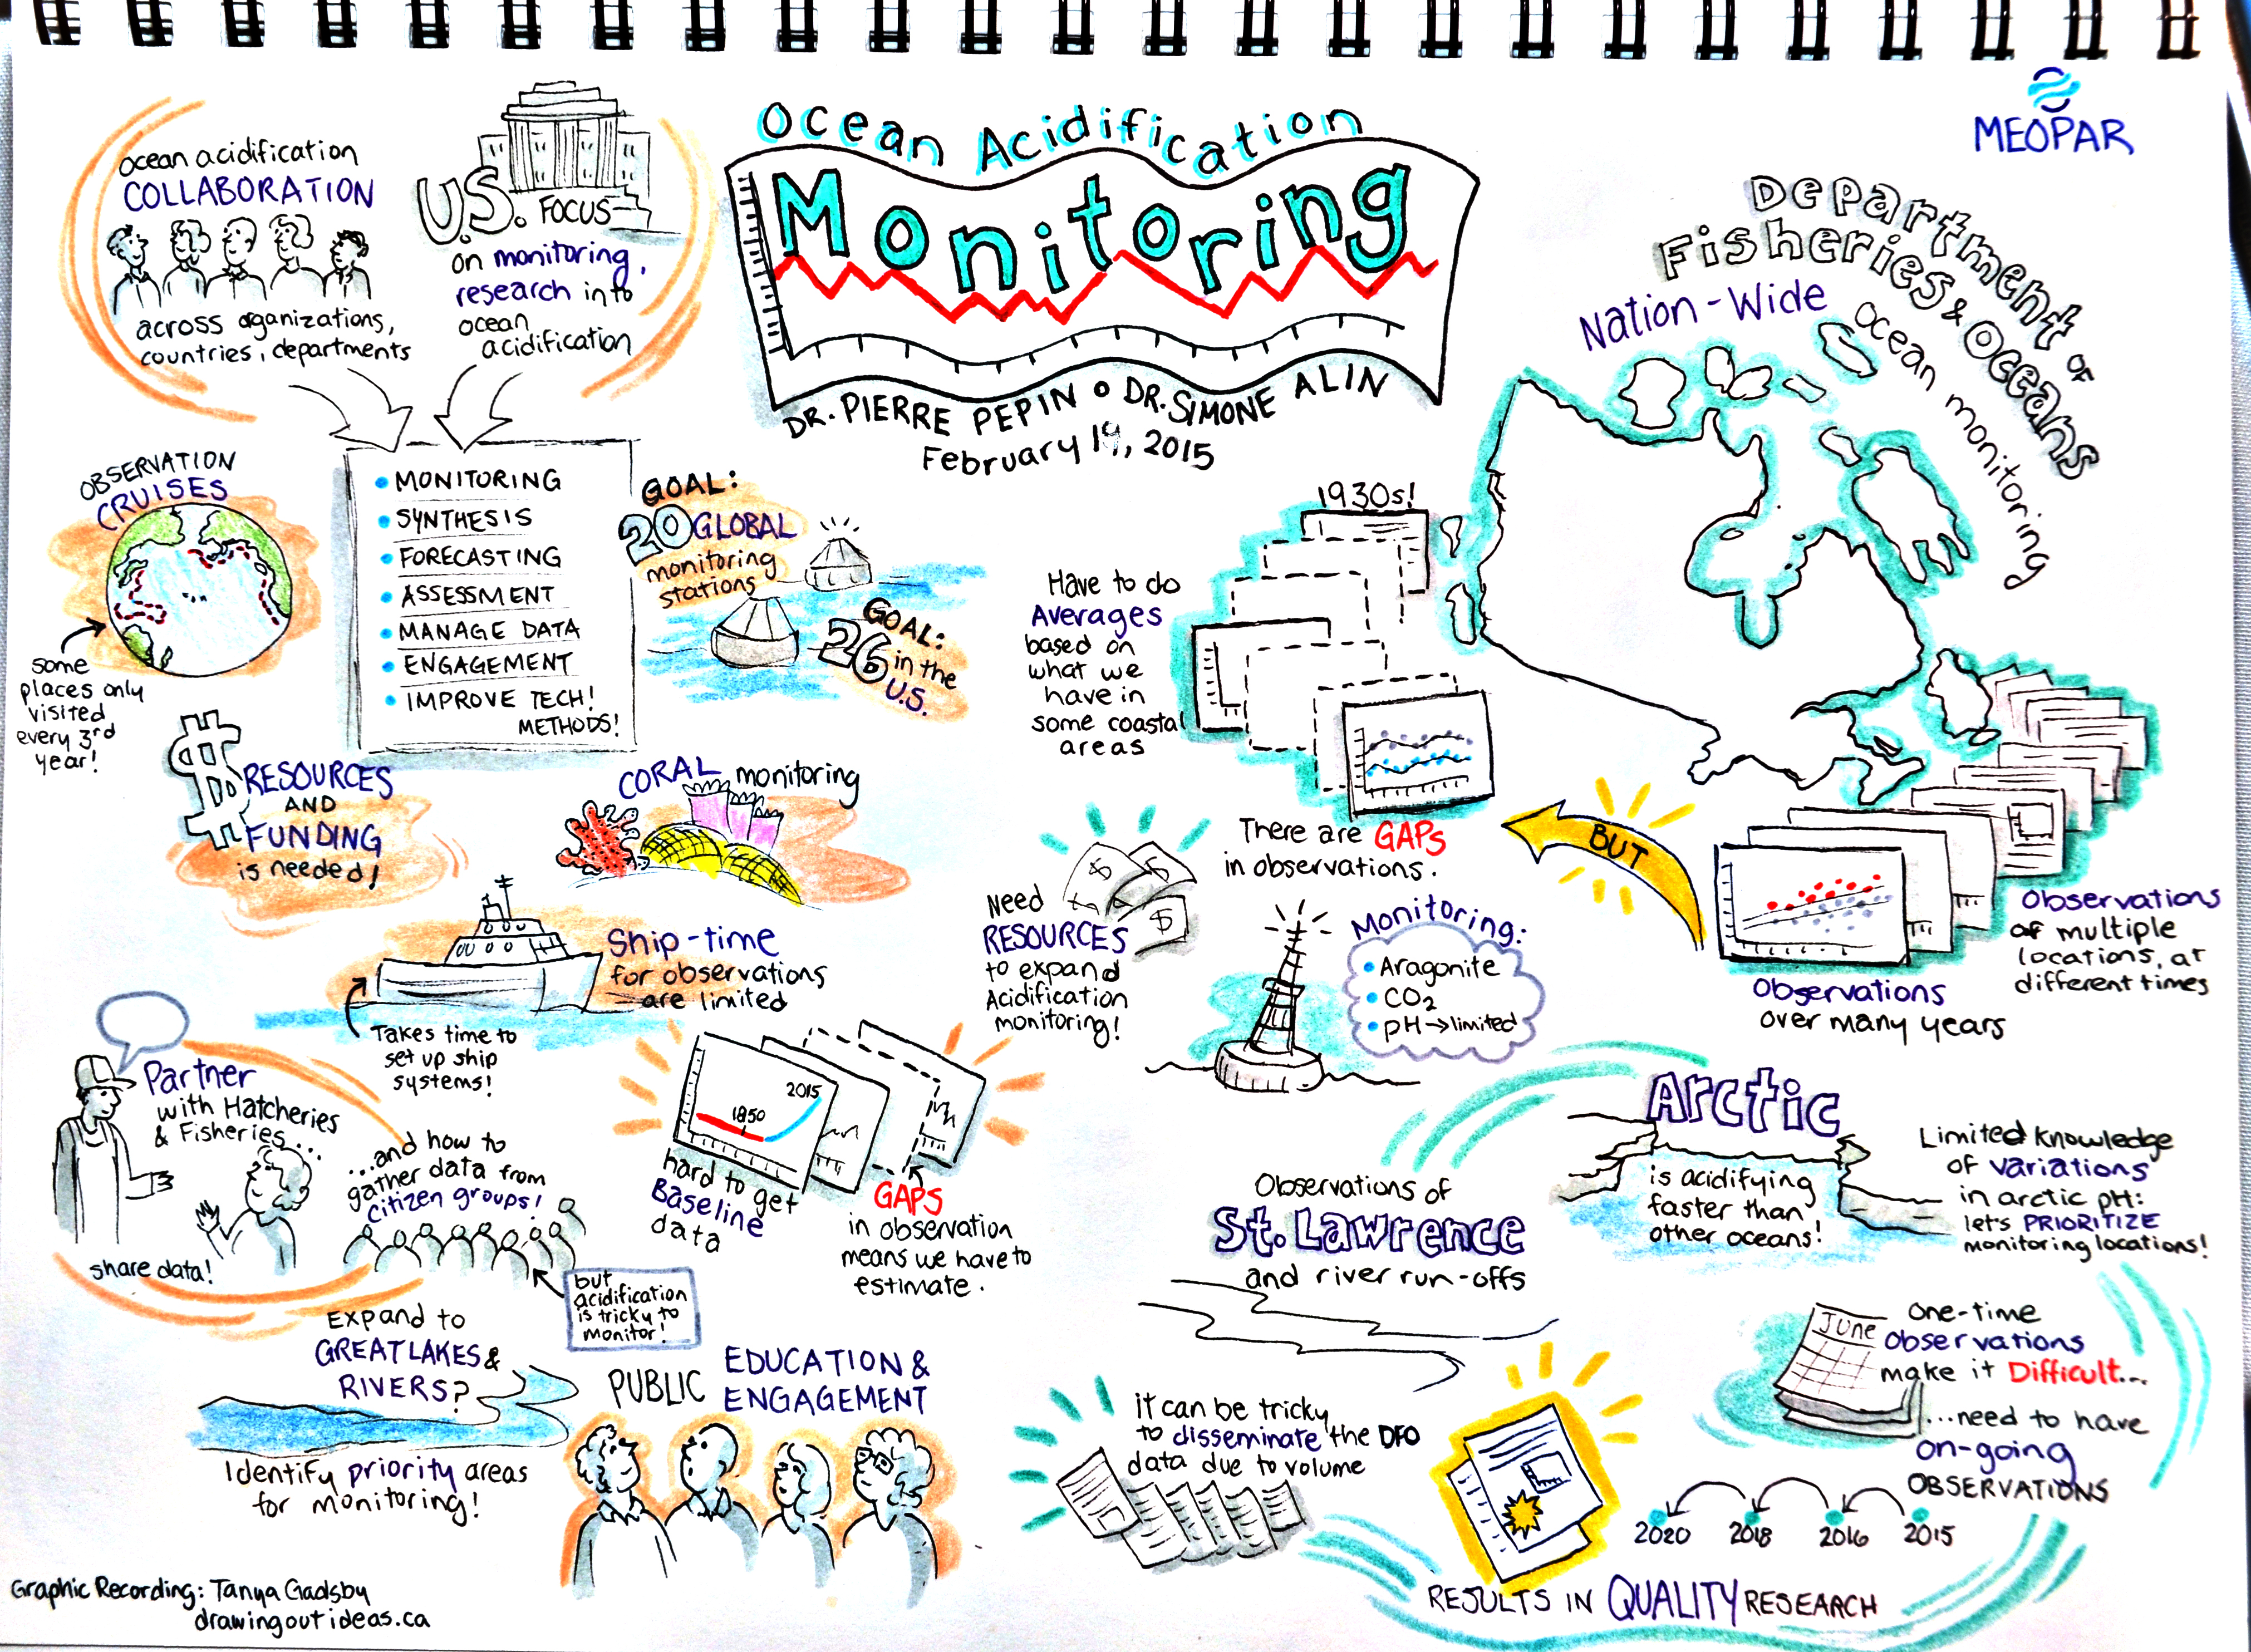 Ocean Acidification
Monitoring
DR. PIERRE PEPIN o DR. SIMONE ALIN
February 19, 2015
MEOPAR
ocean acidification
COLLABORATION
across organizations,
countries, departments
U.S. FOCUS
on monitoring,
research into
ocean
acidification
• MONITORING
• SYNTHESIS
• FORECASTING
• ASSESSMENT
• MANAGE DATA
• ENGAGEMENT
• IMPROVE TECH!
METHODS!
OBSERVATION
CRUISES
some
places only
visited
every 3rd
year!
GOAL:
20 GLOBAL
monitoring
stations
GOAL:
26 in the
U.S.
$ RESOURCES
AND
FUNDING
is needed!
CORAL monitoring
Ship-time
for observations
are limited
Takes time to
set up ship
systems!
Partner
with Hatcheries
& Fisheries...
share data!
...and how to
gather data from
citizen groups!
but
acidification
is tricky to
monitor!
1850
2015
hard to get
Baseline
data
GAPS
in observation
means we have to
estimate.
Expand to
GREAT LAKES &
RIVERS?
Identify priority areas
for monitoring!
PUBLIC EDUCATION &
ENGAGEMENT
Graphic Recording: Tanya Gadsby
drawingoutideas.ca
Department of
Fisheries & Oceans
Nation-Wide
ocean monitoring
1930s!
Have to do
Averages
based on
what we
have in
some coastal
areas
There are GAPs
in observations.
BUT
Observations
of multiple
locations, at
different times
Observations
over many years
$ $ $
Need
RESOURCES
to expand
Acidification
monitoring!
Monitoring:
• Aragonite
• CO2
• pH → limited
Arctic
is acidifying
faster than
other oceans!
Limited knowledge
of variations
in arctic pH:
let's PRIORITIZE
monitoring locations!
Observations of
St. Lawrence
and river run-offs
June
One-time
observations
make it Difficult...
...need to have
on-going
OBSERVATIONS
2020 2018 2016 2015
it can be tricky
to disseminate the DFO
data due to volume
RESULTS IN QUALITY RESEARCH